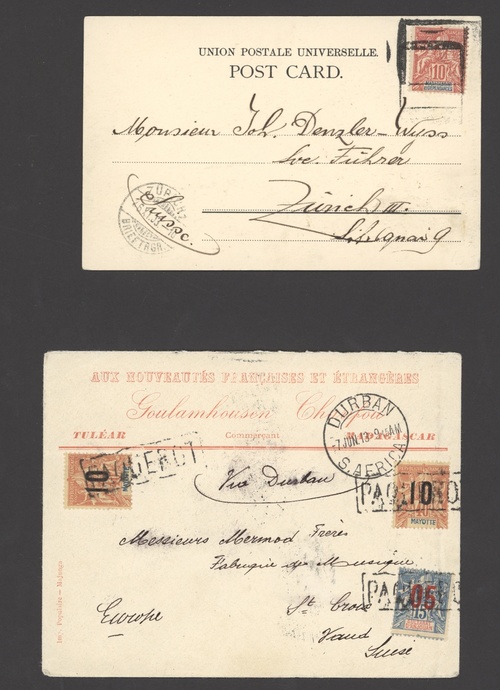 UNION POSTALE UNIVERSELLE.
POST CARD.
10
Monsieur Joh. Denzler-Wyss
Loc. Führer
Zürich III.
Sihlquai 9
Suisse.
ZÜRICH
BRIEFTRGR.
AUX NOUVEAUTÉS FRANÇAISES ET ÉTRANGÈRES
Goulamhousen
TULÉAR
Commerçant
MADAGASCAR
DURBAN
7 JUN 13 9 15 AM
S. AFRICA
10
PAQUEBOT
Via Durban
10
PAQUEBOT
MAYOTTE
Messieurs Mermod Frères
Fabrique de Musique
Europe
St Croix
Vaud
Suisse
PAQUEBOT
05
15
Imp. Populaire - Majunga